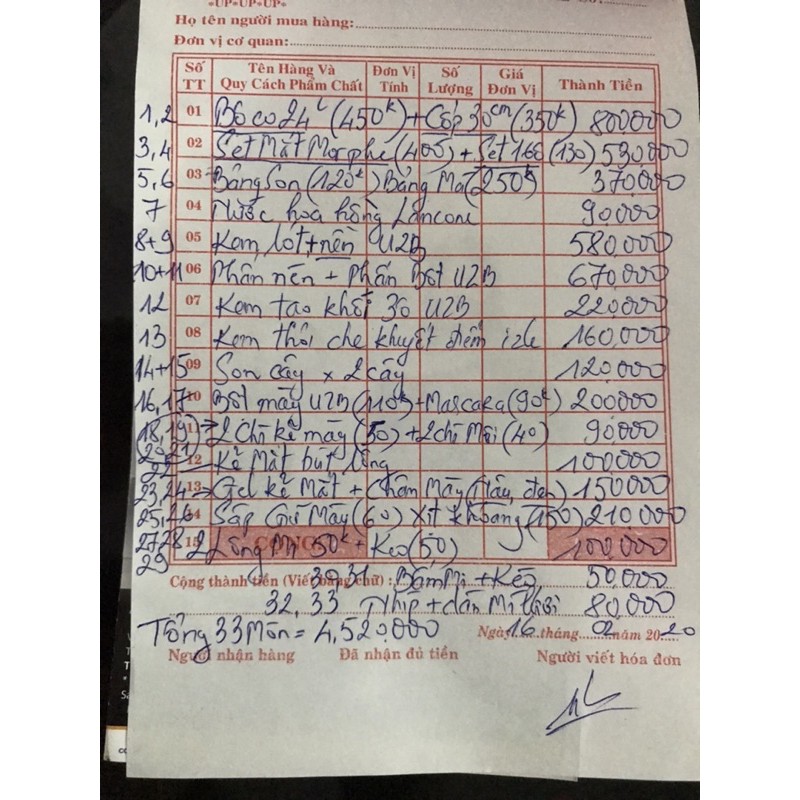 *UP*UP*UP*
Họ tên người mua hàng:
Đơn vị cơ quan:
Số TT Tên Hàng Và Quy Cách Phẩm Chất Đơn Vị Tính Số Lượng Giá Đơn Vị Thành Tiền
1,2 01 Bộ cọ 24 (450k) + Cốp 30cm (350k) 800,000
3,4 02 Set Mắt Morphe (400) + Set 166 (130) 530,000
5,6 03 Bảng Son (120k) Bảng Má (250k) 370,000
7 04 Nước hoa hồng Lancome 90,000
8+9 05 Kem lót + nền U2B 580,000
10+11 06 Phấn nén + Phấn Bột U2B 670,000
12 07 Kem tạo khối 3D U2B 220,000
13 08 Kem thỏi che khuyết điểm 160,000
14+15 09 Son cây x 2 cây 120,000
16,17 10 Bột mày U2B (110k) + Mascara (90k) 200,000
18,19 11 → 2 Chì kẻ mày (50) + 2 chì Môi (40) 90,000
20,21
22 12 Kẻ Mắt bút lông 100,000
23,24 → 13 Gel kẻ Mắt + Chân Mày (Nâu, đen) 150,000
25,26 14 Sáp Giữ Mày (60) Xịt khoáng (150) 210,000
27,28 29 15 CỘNG 2 Lông Mi 50k + Keo (50) 100,000
Cộng thành tiền (Viết bằng chữ): 30,31 Bấm Mi + Kéo 50,000
32,33 Nhíp + dán Mí lưới 80,000
Tổng 33 Món = 4,520,000 Ngày 16 tháng 02 năm 20 20
Người nhận hàng Đã nhận đủ tiền Người viết hóa đơn